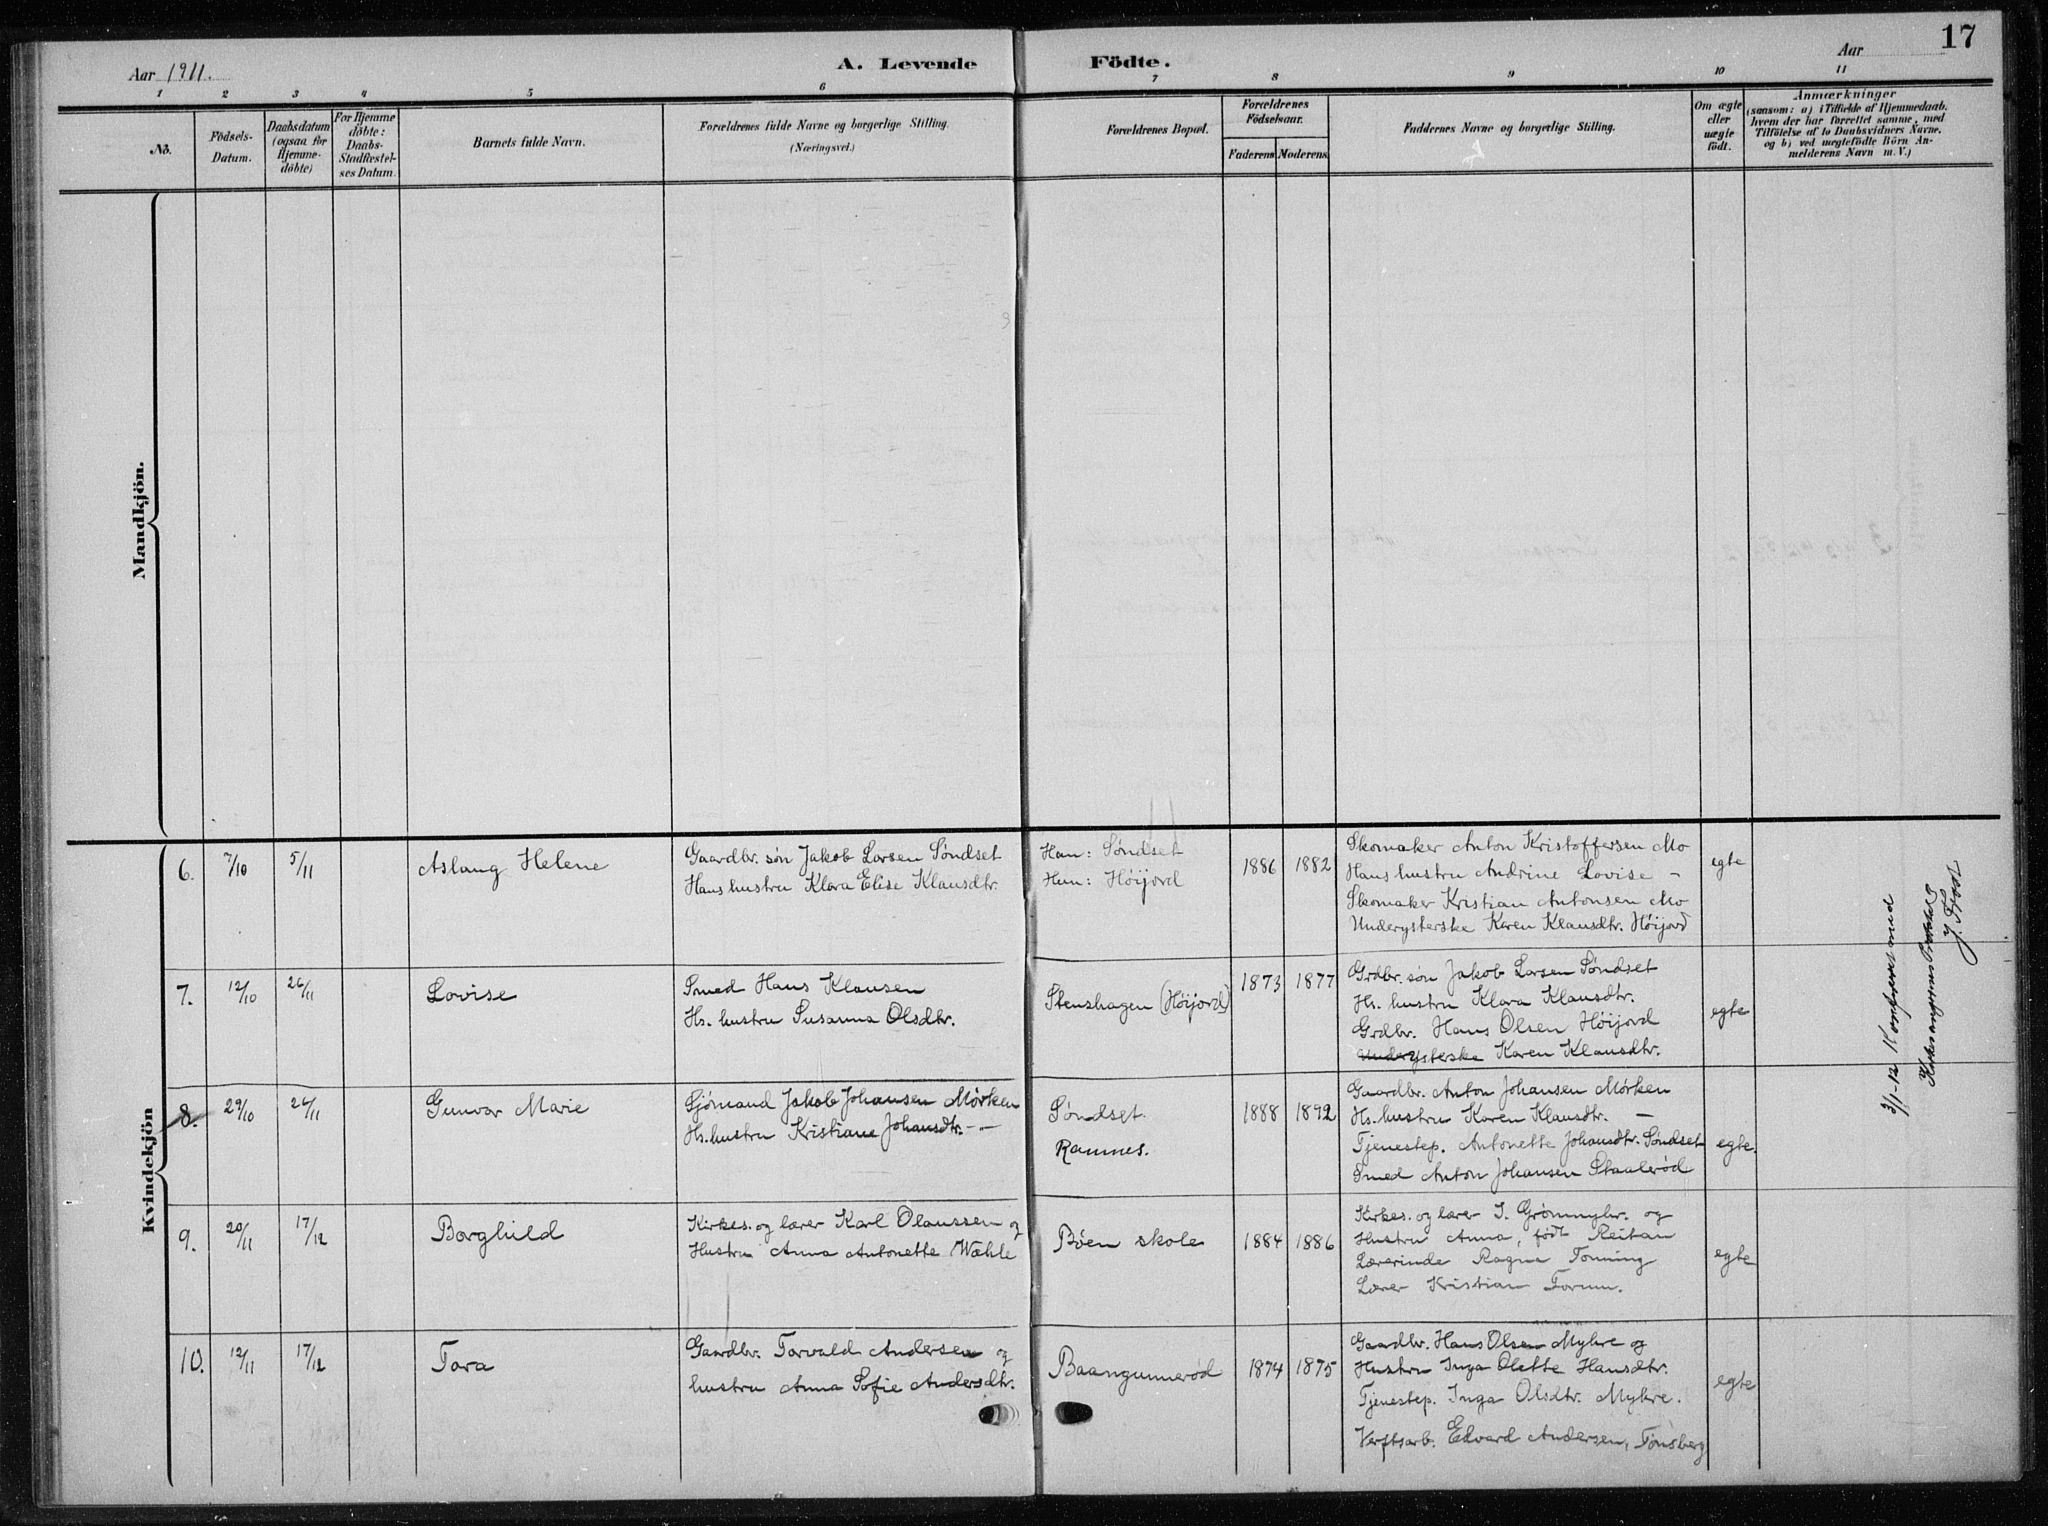 17
Aar 1911.
A. Levende Födte.
Aar
1 2 3 4 5 6 7 8 9 10 11
No.
Födsels-
Datum.
Daabsdatum
(ogsaa for
Hjemme-
döbte)
For Hjemme
döbte:
Daabs-
Stadfæstel-
ses Datum.
Barnets fulde Navn.
Forældrenes fulde Navne og borgerlige Stilling.
(Næringsvei.)
Forældrenes Bopæl.
Forældrenes
Födselsaar.
Faderens Moderens
Faddernes Navne og borgerlige Stilling.
Om ægte
eller
uægte
födt.
Anmærkninger
(saasom: a) i Tilfælde af Hjemmedaab.
hvem der har forrettet samme, med
Tilföielse af to Daabsvidners Navne.
og b) ved uægtefödte Börn An-
melderens Navn m. V.)
Mandkjön.
Kvindekjön
6. 7/10 5/11
Aslaug Helene
Gaardbr. søn Jakob Larsen Søndset
Hans hustru Klara Elise Klausdtr.
Han: Søndset
Hun: Høijord
1886 1882
Skomaker Anton Kristoffersen Mo
Hans hustru Andrine Lovise –
Skomaker Kristian Antonsen Mo
Underysterske Karen Klausdtr. Høijord
egte
7. 12/10 26/11
Lovise
Smed Hans Klausen
Hs. hustru Susanna Olsdtr.
Stenshagen (Høijord)
1873 1877
Grdbr. søn Jakob Larsen Søndset
Hs. hustru Klara Klausdtr.
Grdbr. Hans Olsen Høijord
Underysterske Karen Klausdtr.
egte
8. 29/10 26/11
Gunvar Marie
Sjømand Jakob Johansen Mørken
Hs. hustru Kristiane Johansdtr. –"–
Søndset
Ramnes.
1888 1892
Gaardbr. Anton Johansen Mørken
Hs. hustru Karen Klausdtr. –
Tjenestep. Antonette Johansdtr. Søndset
Smed Anton Johansen Staalerød
egte.
9. 20/11 17/12
Borghild
Kirkes. og lærer Karl Olaussen og
Hustru Anna Antonette Wæhle
Bøen skole
1884 1886
Kirkes. og lærer I. Grømmyhr. og
Hustru Anna, født Reitan
Lærerinde Ragna Tonning
Lærer Kristian Torum.
egte
10. 12/11 17/12
Tora
Gaardbr. Torvald Andersen og
hustru Anna Sofie Andersdtr.
Baangunnerød
1874 1875
Gaardbr. Hans Olsen Myhre og
Hustru Inga Olette Hansdtr.
Tjenestep. Inga Olsdtr. Myhre.
Verftsarb. Edvard Andersen, Tønsberg
egte
3/1-12 Konfereret med